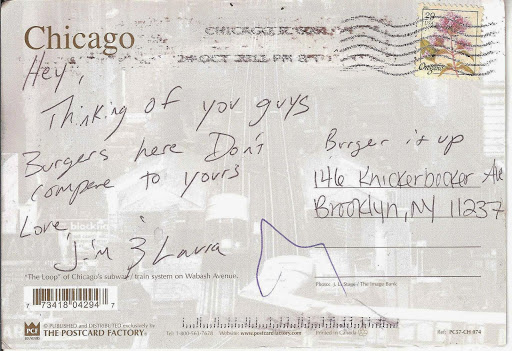 Chicago
CHICAGO IL
24 OCT 2011 PM
29
USA
Oregano
Hey,
Thinking of you guys
Burgers here Don't
compare to yours
Love,
Jim & Laura
Burger it up
146 Knickerbocker Ave
Brooklyn, NY 11237
"The Loop" of Chicago's subway / train system on Wabash Avenue.
Photo: J. L. Stage / The Image Bank
7 73418 04294 7
© PUBLISHED and DISTRIBUTED exclusively by
THE POSTCARD FACTORY®
Tel: 1-800-563-7678 Website: www.postcardfactory.com Printed in Canada
Ref: PC57-CH 074